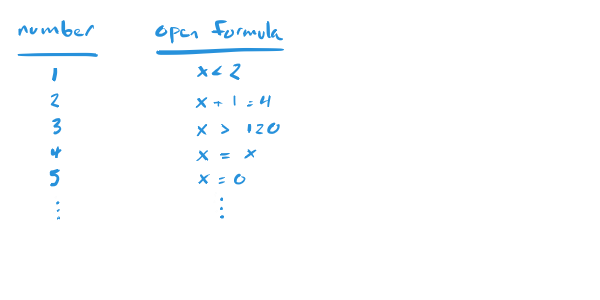 number open formula
1 x < 2
2 x + 1 = 4
3 x > 120
4 x = x
5 x = 0
⋮ ⋮